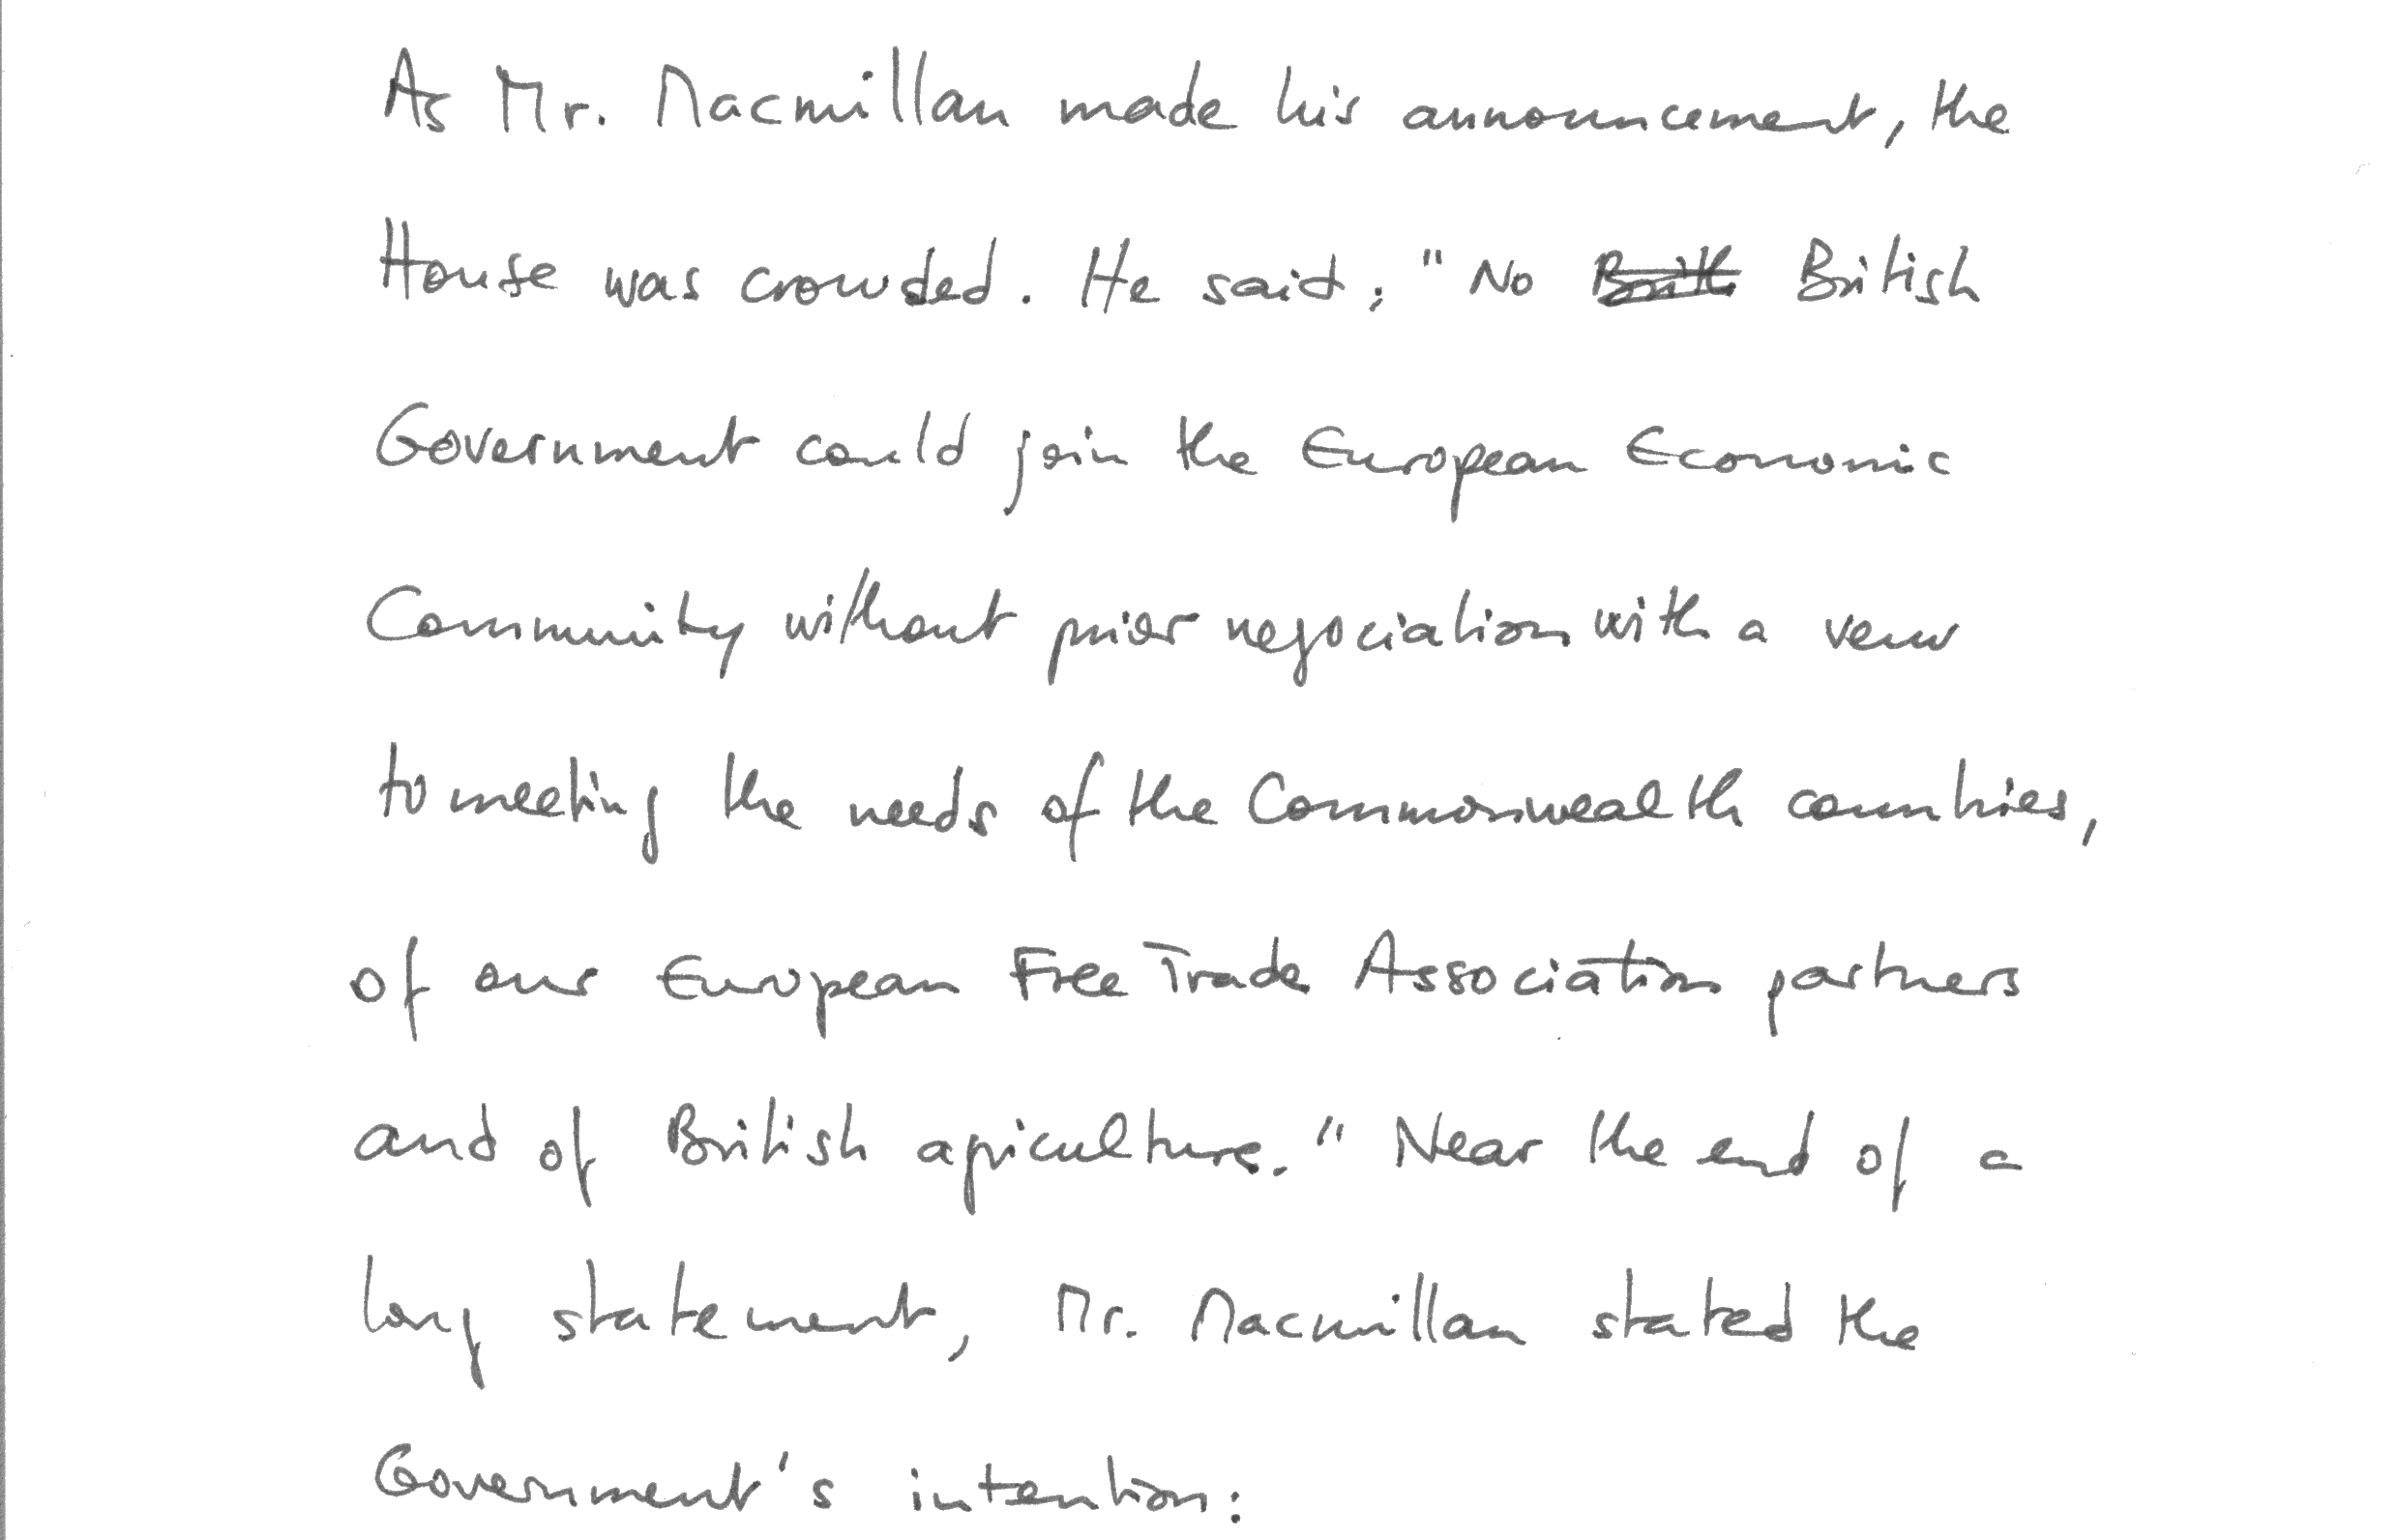 As Mr. Macmillan made his announcement, the
House was crowded. He said: "No British
Government could join the European Economic
Community without prior negociation with a venw
to meeting the needs of the Commonwealth countries,
of our European Free Trade Association partners
and of British agriculture." Near the end of a
long statement, Mr. Macmillan stated the
Government's intention: